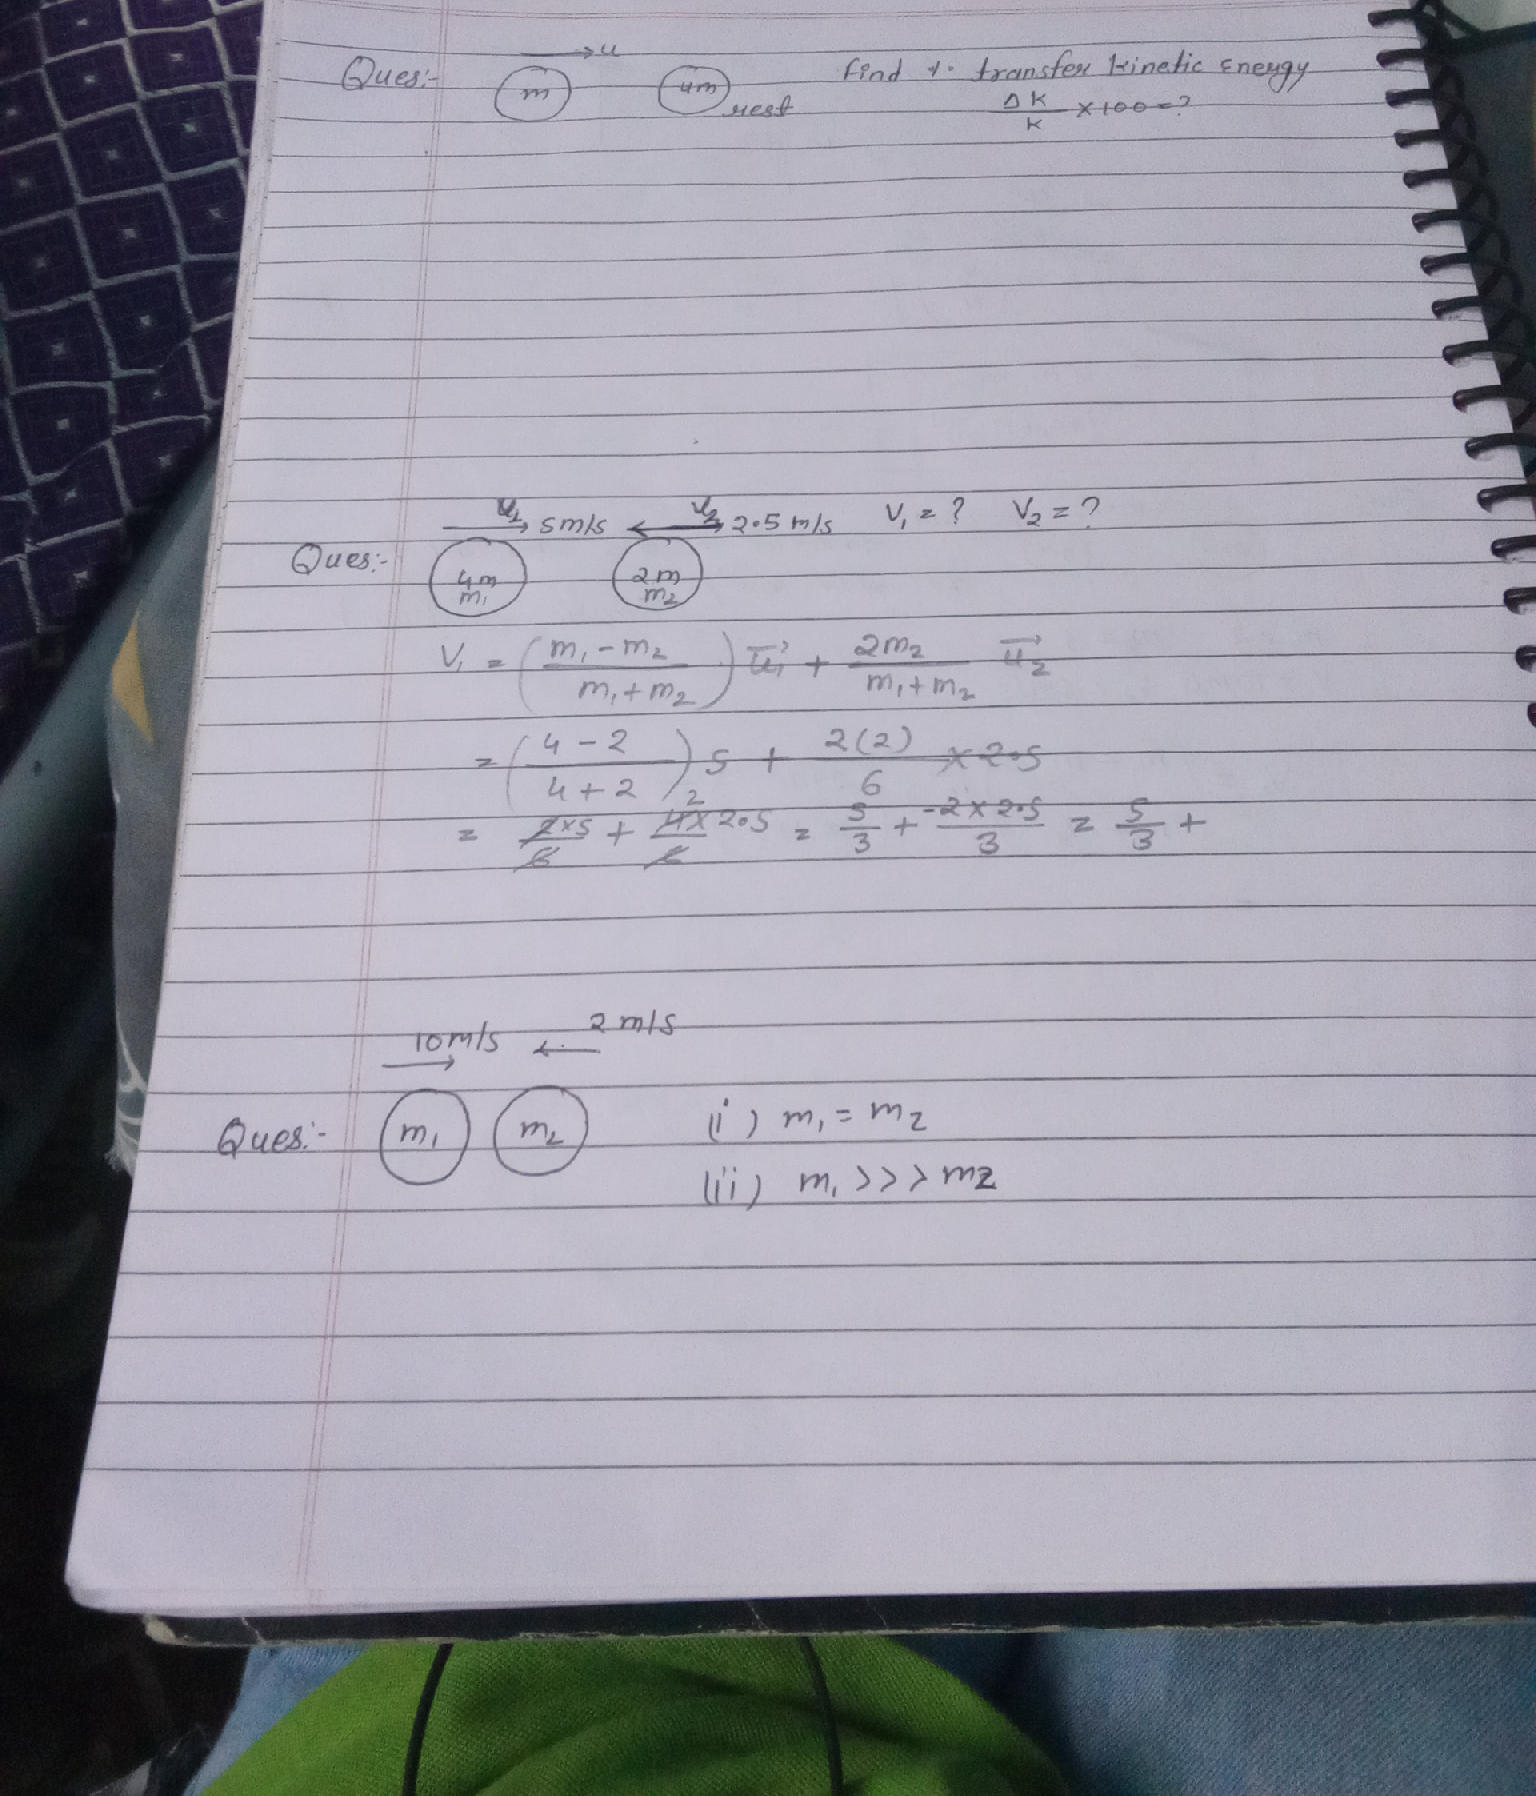 Ques:- m → u 4m rest find % transfer kinetic Energy
ΔK/K × 100 = ?
u₁ → 5 m/s u₂ 2.5 m/s V₁ = ? V₂ = ?
Ques:- 4m m₁ 2m m₂
V₁ = (m₁ - m₂ / m₁ + m₂) u₁ + 2m₂ / m₁ + m₂ u₂
= (4 - 2 / 4 + 2) 5 + 2(2) / 6 × 2.5
= 2×5 / 6 + 4× 2.5 / 6 = 5/3 + -2 × 2.5 / 3 = 5/3 +
10 m/s → ← 2 m/s
Ques:- m₁ m₂ (i) m₁ = m₂
(ii) m₁ >>> m₂